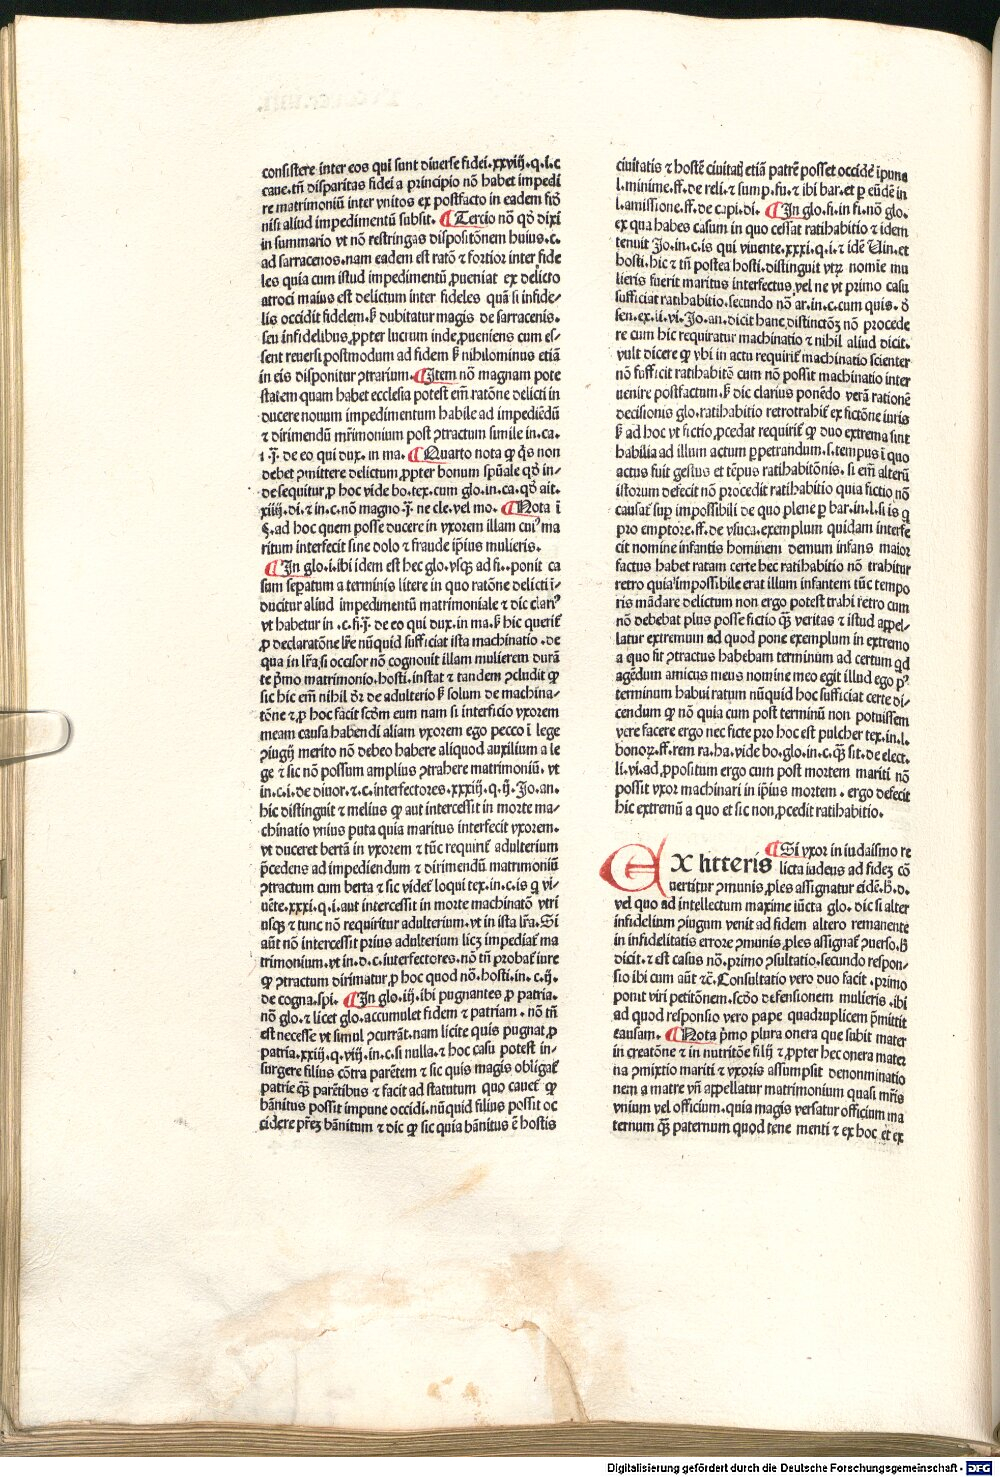 consistere inter eos qui sunt diuerse fidei.xxviij.q.i.c
caue.tñ disparitas fidei a principio nõ habet impedi
re matrimoniũ inter vnitos ex postfacto in eadem fiđ
nisi aliud impedimentũ subsit. ¶ Tercio nõ qđ dixi
in summario vt nõ restringas dispositõnem huius.c.
ad sarracenos.nam eadem est ratõ ⁊ fortior inter fide
les quia cum istud impedimentũ ꝓueniat ex delicto
atroci maius est delictum inter fideles quã si infide⸗
lis occidit fidelem.ꝫ dubitatur magis de sarracenis.
seu infidelibus ꝓpter lucrum inde ꝓueniens cum es⸗
sent reuersi postmodum ad fidem ꝫ nihilominus etiã
in eis disponitur ꝯtrarium. ¶ Item nõ magnam pote
statem quam habet ecclesia potest em̃ ratõne delicti in
ducere nouum impedimentum habile ad impediẽdũ
⁊ dirimendũ mr̃imonium post ꝯtractum simile in.ca.
i.ꝫ. de eo qui dux. in ma. ¶ Quarto nota ꝙ qs non
debet ꝯmittere delictum ꝓpter bonum spũale qđ in⸗
de sequitur ꝓ hoc vide bo.tex.cum glo.in.ca.qđ ait.
xiiij.di.⁊ in.c.nõ magno.ꝫ. ne cle.vel mo. ¶ Nota ĩ
§.ad hoc quem posse ducere in vxorem illam cui⁹ ma
ritum interfecit sine dolo ⁊ fraude ip̃ius mulieris.
¶ In glo.i.ibi idem est hec glo.vsqꝫ ad fi..ponit ca
sum seꝑatum a terminis litere in quo ratõne delicti ĩ⸗
ducitur aliud impedimentũ matrimoniale ⁊ dic clari⁹
vt habetur in .c.fi.ꝫ. de eo qui dux.in ma.ꝫ hic querit̃
ꝓ declaratõne lr̃e nũquid sufficiat ista machinatio .de
qua in lr̃a.si occisor nõ cognouit illam mulierem durã
te p̃mo matrimonio.hosti.instat ⁊ tandem ꝯcludit ꝙ
sic hic em̃ nihil dr̃ de adulterio ꝫ solum de machina⸗
tõne ⁊ ꝓ hoc facit scđm eum nam si interficio vxorem
meam causa habendi aliam vxorem ego pecco ĩ lege
ꝯiugij merito nõ debeo habere aliquod auxilium a le
ge ⁊ sic nõ possum amplius ꝯtrahere matrimoniũ. vt
in.c.i.de diuor.⁊.c.interfectores.xxxiij.q.ij. Jo.an.
hic distinguit ⁊ melius ꝙ aut intercessit in morte ma⸗
chinatio vnius puta quia maritus interfecit vxorem.
vt duceret bertã in vxorem ⁊ tũc requirit̃ adulterium
p̃cedens ad impediendum ⁊ dirimendũ matrimoniũ
ꝯtractum cum berta ⁊ sic videt̃ loqui tex.in.c.is q̃ vi⸗
uẽte.xxxi.q.i.aut intercessit in morte machinatõ vtri
usqꝫ ⁊ tunc nõ requiritur adulterium.vt in ista lr̃a. Si
aũt nõ intercessit prius adulterium licꝫ impediat̃ ma
trimonium.vt in.d.c.interfectores.nõ tñ probat̃ iure
ꝙ ꝯtractum dirimatur ꝓ hoc quod nõ.hosti.in.c.ij.
de cogna.spi. ¶ In glo.iij.ibi pugnantes ꝓ patria.
nõ glo.⁊ licet glo.accumulet fidem ⁊ patriam . nõ tñ
est necesse vt simul ꝯcurrãt.nam licite quis pugnat ꝓ
patria.xxiij.q.viij.in.c.si nulla.⁊ hoc casu potest in⸗
surgere filius cõtra parẽtem ⁊ sic quis magis obligat̃
patrie qꝫ parẽtibus ⁊ facit ad statutum quo cauet̃ ꝙ
bãnitus possit impune occidi.nũquid filius possit oc
cidere pr̃eꝫ bãnitum ⁊ dic ꝙ sic quia bãnitus ẽ hostis
ciuitatis ⁊ hostẽ ciuitatꝭ etiã patrẽ posset occidẽ ĩpune
l.minime.ff.de reli.⁊ sump.fu.⁊ ibi bar.et ꝑ eũdẽ in
l.amissione.ff.de capi.di. ¶ In glo.fi.in fi.nõ glo.
ex qua habes casum in quo cessat ratihabitio ⁊ idem
tenuit Jo.in.c.is qui viuente.xxxi.q.i.⁊ idẽ Uin.et
hosti.hic ⁊ tñ postea hosti.distinguit vtrꝫ nomĩe mu
lieris fuerit maritus interfectus vel ne vt primo casu
sufficiat ratihabitio.secundo nõ ar.in.c.cum quis. đ
sen.ex.li.vi.Jo.an.dicit hanc distinctõꝫ nõ procede
re cum hic requiratur machinatio ⁊ nihil aliud dicit.
vult dicere ꝙ vbi in actu requirit̃ machinatio scienter
nõ sufficit ratihabitõ cum nõ possit machinatio inter
uenire postfactum.ꝫ dic clarius ponẽdo verã rationẽ
decisionis glo.ratihabitio retrotrahit̃ ex fictõne iuris
ꝫ ad hoc vt fictio ꝓcedat requirit̃ ꝙ duo extrema sint
habilia ad illum actum ꝑpetrandum.s.tempus ĩ quo
actus fuit gestus et tẽpus ratihabitõnis. si em̃ alterũ
istorum defecit nõ procedit ratihabitio quia fictio nõ
causat̃ suꝑ impossibili de quo plene ꝑ bar.in.l.si is q̃
pro emptore.ff.de vsuca.exemplum quidam interfe
cit nomine infantis hominem demum infans maior
factus habet ratam certe hec ratihabitio nõ trahitur
retro quia impossibile erat illum infantem tũc tempo
ris mãdare delictum non ergo potest trahi retro cum
nõ debebat plus posse fictio qꝫ veritas ⁊ istud apꝑel⸗
latur extremum ad quod pone exemplum in extremo
a quo sit ꝯtractus habebam terminum ad certum qđ
agẽdum amicus meus nomine meo egit illud ego p⁹
terminum habui ratum nũquid hoc sufficiat certe di⸗
cendum ꝙ nõ quia cum post terminũ non potuissem
vere facere ergo nec ficte pro hoc est pulcher tex.in.l.
bonoꝝ.ff.rem ra.ha.vide bo.glo.in.c.qꝫ sit.de elect.
li.vi.ad ꝓpositum ergo cum post mortem mariti nõ
possit vxor machinari in ip̃ius mortem . ergo defecit
hic extremũ a quo et sic non ꝓcedit ratihabitio.
¶ Si vxor in iudaismo re
EX litteris licta iudeus ad fideꝫ cõ
uertitur ꝯmunis ꝓles assignatur eidẽ.h.d.
vel quo ad intellectum maxime iũcta glo. dic si alter
infidelium ꝯiugum venit ad fidem altero remanente
in infidelitatis errore ꝯmunis ꝓles assignat̃ ꝯuerso.h
dicit.⁊ est casus nõ.primo ꝯsultatio.secundo respon⸗
sio ibi cum aũt ⁊c̃. Consultatio vero duo facit . primo
ponit viri petitõnem.scđo defensionem mulieris .ibi
ad quod responsio vero pape quadruplicem p̃mittit
causam. ¶ Nota p̃mo plura onera que subit mater
in creatõne ⁊ in nutritõe filij ⁊ ꝓpter hec onera mater
na ꝑmixtio mariti ⁊ vxoris assumpsit denominatio
nem a matre vñ appellatur matrimonium quasi mr̃is
vnium vel officium.quia magis versatur officium ma
ternum qꝫ paternum quod tene menti ⁊ ex hoc et ex
Digitalisierung gefördert durch die Deutsche Forschungsgemeinschaft - DFG